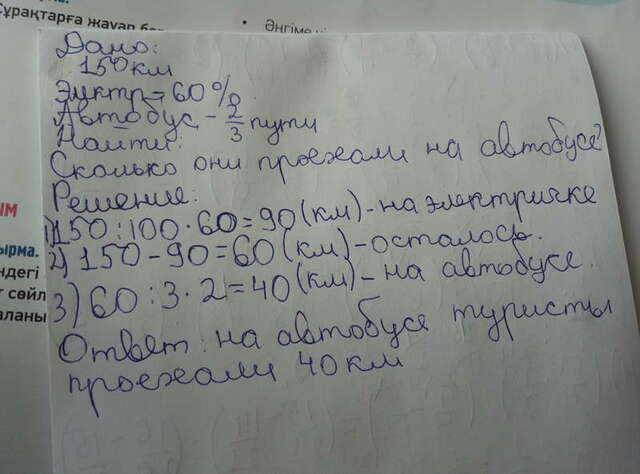 Сұрақтарға жауап бер
• Әңгіме
Дано:
150 км
Электр – 60 %
Автобус – 2/3 пути
Найти:
Сколько они проехали на автобусе?
Решение:
1) 150 : 100 · 60 = 90 (км) – на электричке
2) 150 – 90 = 60 (км) – осталось.
3) 60 : 3 · 2 = 40 (км) – на автобусе.
Ответ: на автобусе туристы
проехали 40 км
ЫМ
ырма.
ндегі
т сөйл
аланы